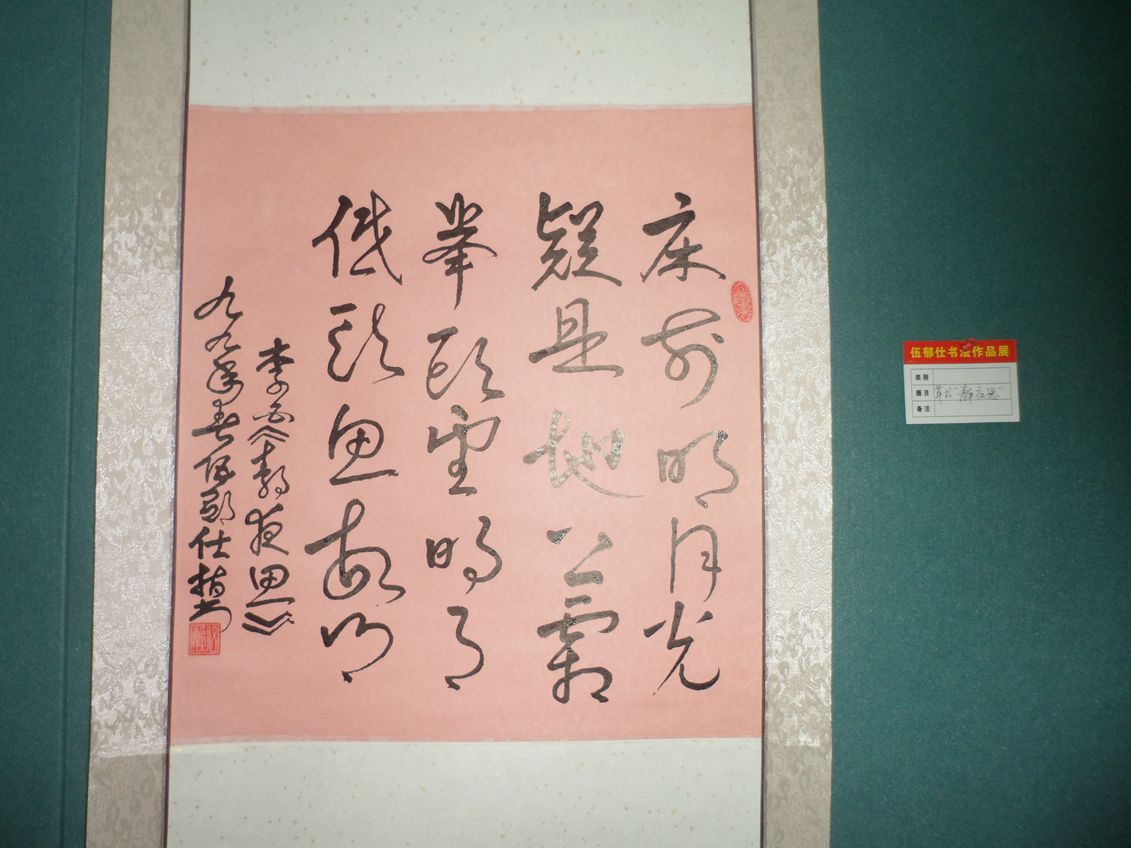 床前明月光
疑是地上霜
举头望明月
低头思故乡
李白《静夜思》
九九年春伍郁仕
伍郁仕书法作品展
类别
题目 草书“静夜思”
备注